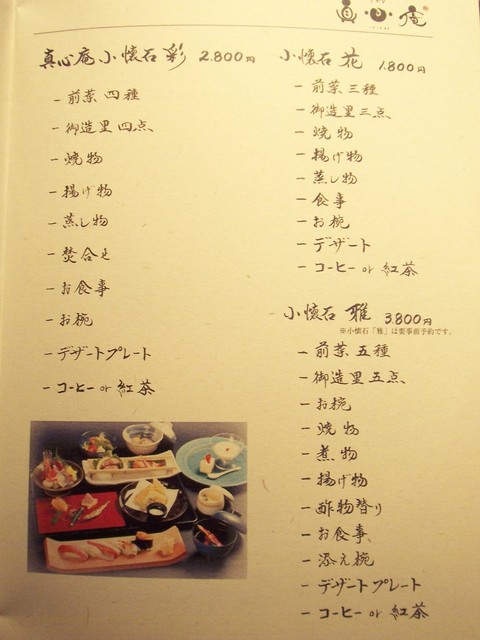 真心庵
真心庵小懐石 彩 2.800円
- 前菜 四種
- 御造里 四点
- 焼物
- 揚げ物
- 蒸し物
- 焚合せ
- お食事
- お椀
- デザートプレート
- コーヒー or 紅茶
小懐石 花 1.800円
- 前菜 三種
- 御造里 三点
- 焼物
- 揚げ物
- 蒸し物
- 食事
- お椀
- デザート
- コーヒー or 紅茶
小懐石 雅 3.800円
※小懐石「雅」は要事前予約です。
- 前菜 五種
- 御造里 五点
- お椀
-焼物
- 煮物
- 揚げ物
- 酢物替り
- お食事
- 添え椀
- デザートプレート
- コーヒー or 紅茶